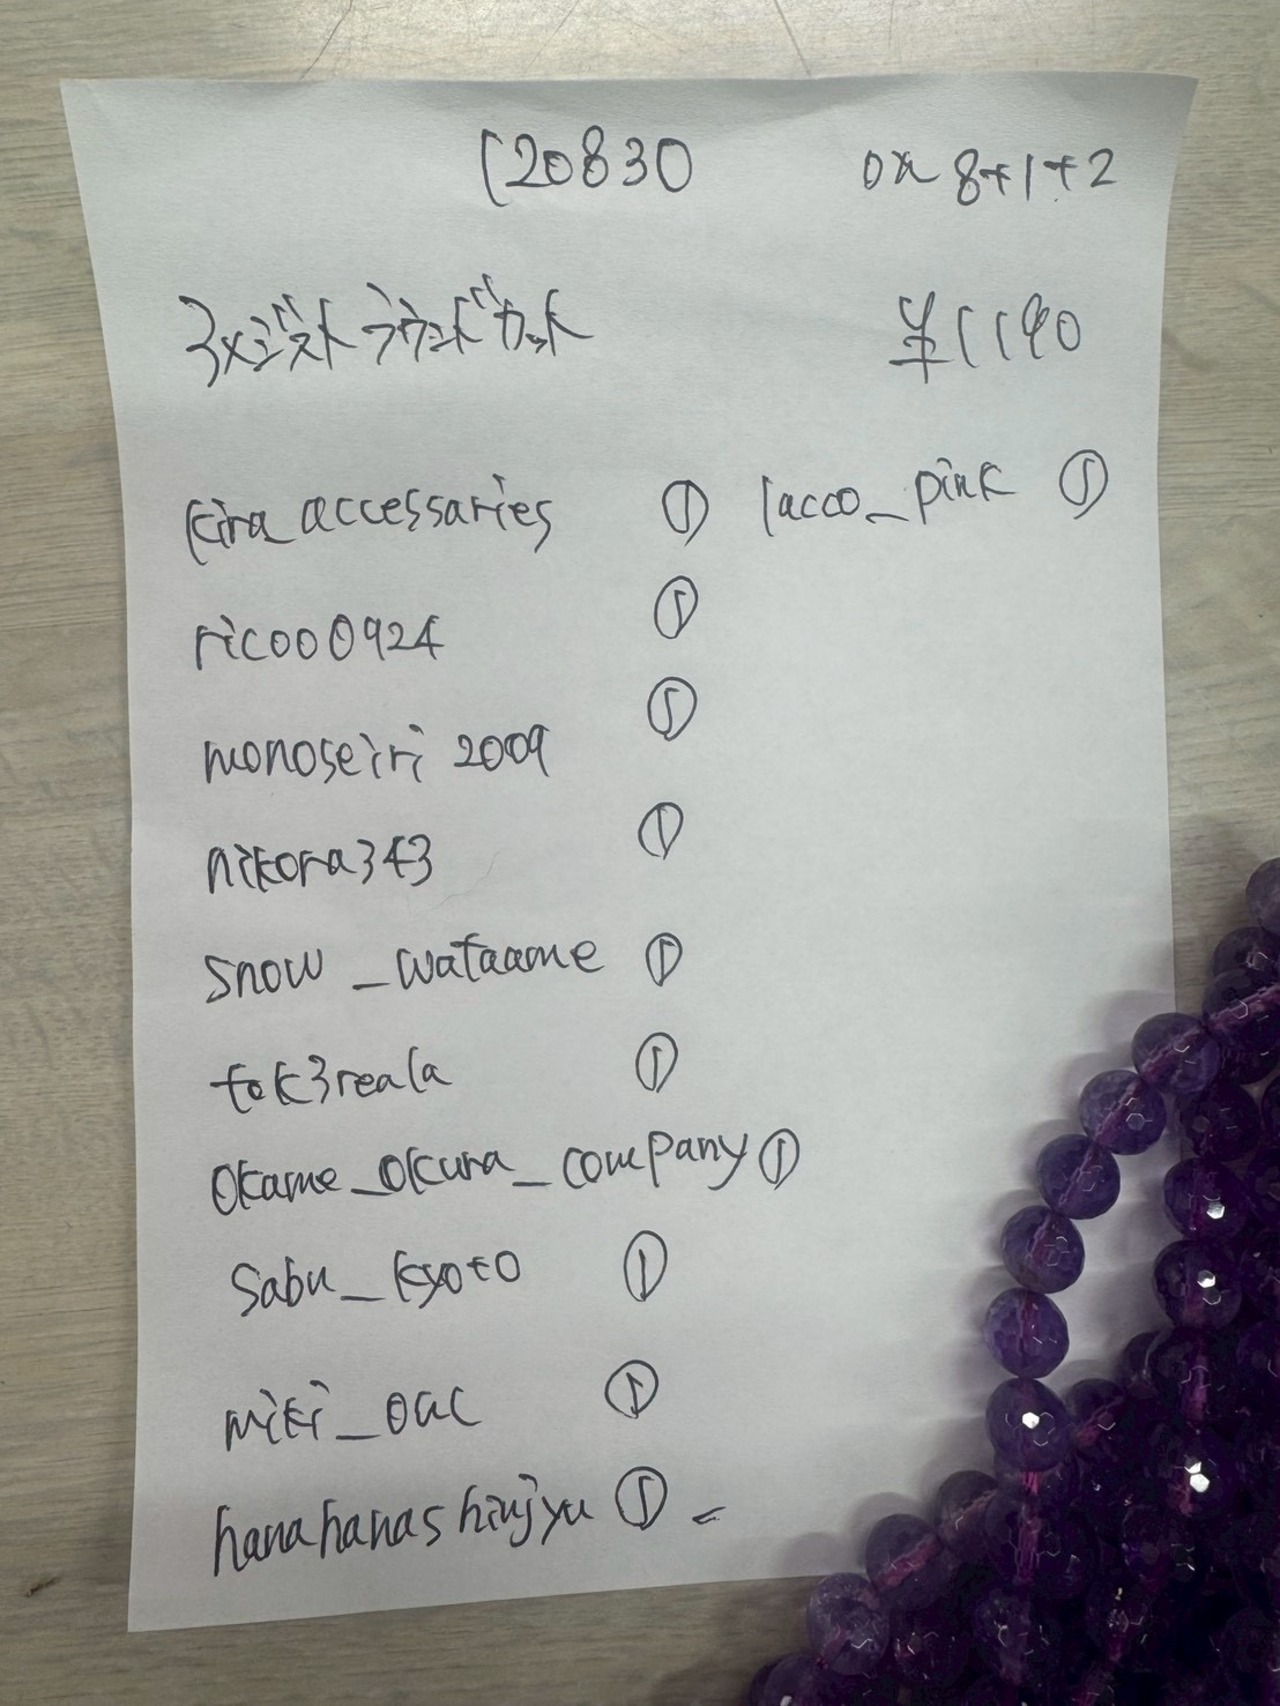 120830 on 8+1+2
アメジストラウンドカット ¥1190
kira_accessaries ① lacco_pink ①
ricoo0924 ①
monoseiri2009 ①
nikora343 ①
snow_wataame ①
tok3reala ①
okame_okura_company ①
sabu_kyoto ①
miki_ouc ①
hanahanashinjyu ①